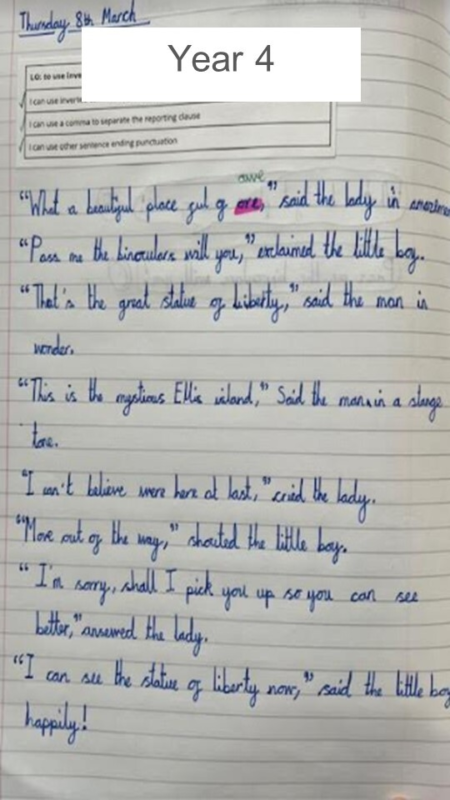 Thursday 8th March
Year 4
LO: to use inve
I can use inverte
I can use a comma to separate the reporting clause
I can use other sentence ending punctuation
awe
"What a beautiful place gul of ore," said the lady in
"Pass me the binoculars will you," exclaimed the little boy.
"That's the great statue of Liberty," said the man in
wonder.
"This is the mystious Ellis island," Said the man in a stange
tone.
"I can't believe were here at last," cried the lady.
"Move out of the way," shouted the little boy.
"I'm sorry, shall I pick you up so you can see
better," answered the lady.
"I can see the statue of liberty now," said the little boy
happily!